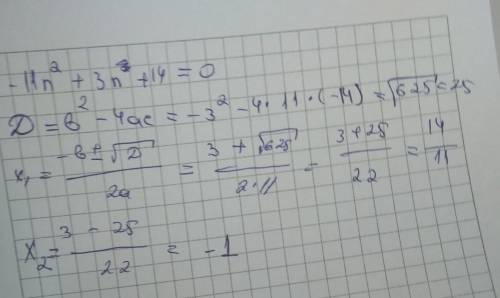 -11n² + 3n + 14 = 0
D = b² - 4ac = -3² - 4 · 11 · (-14) = √625 = 25
x₁ = (-b ± √D) / 2a = (3 + √625) / 2·11 = (3 + 25) / 22 = 14 / 11
x₂ = (3 - 25) / 22 = -1